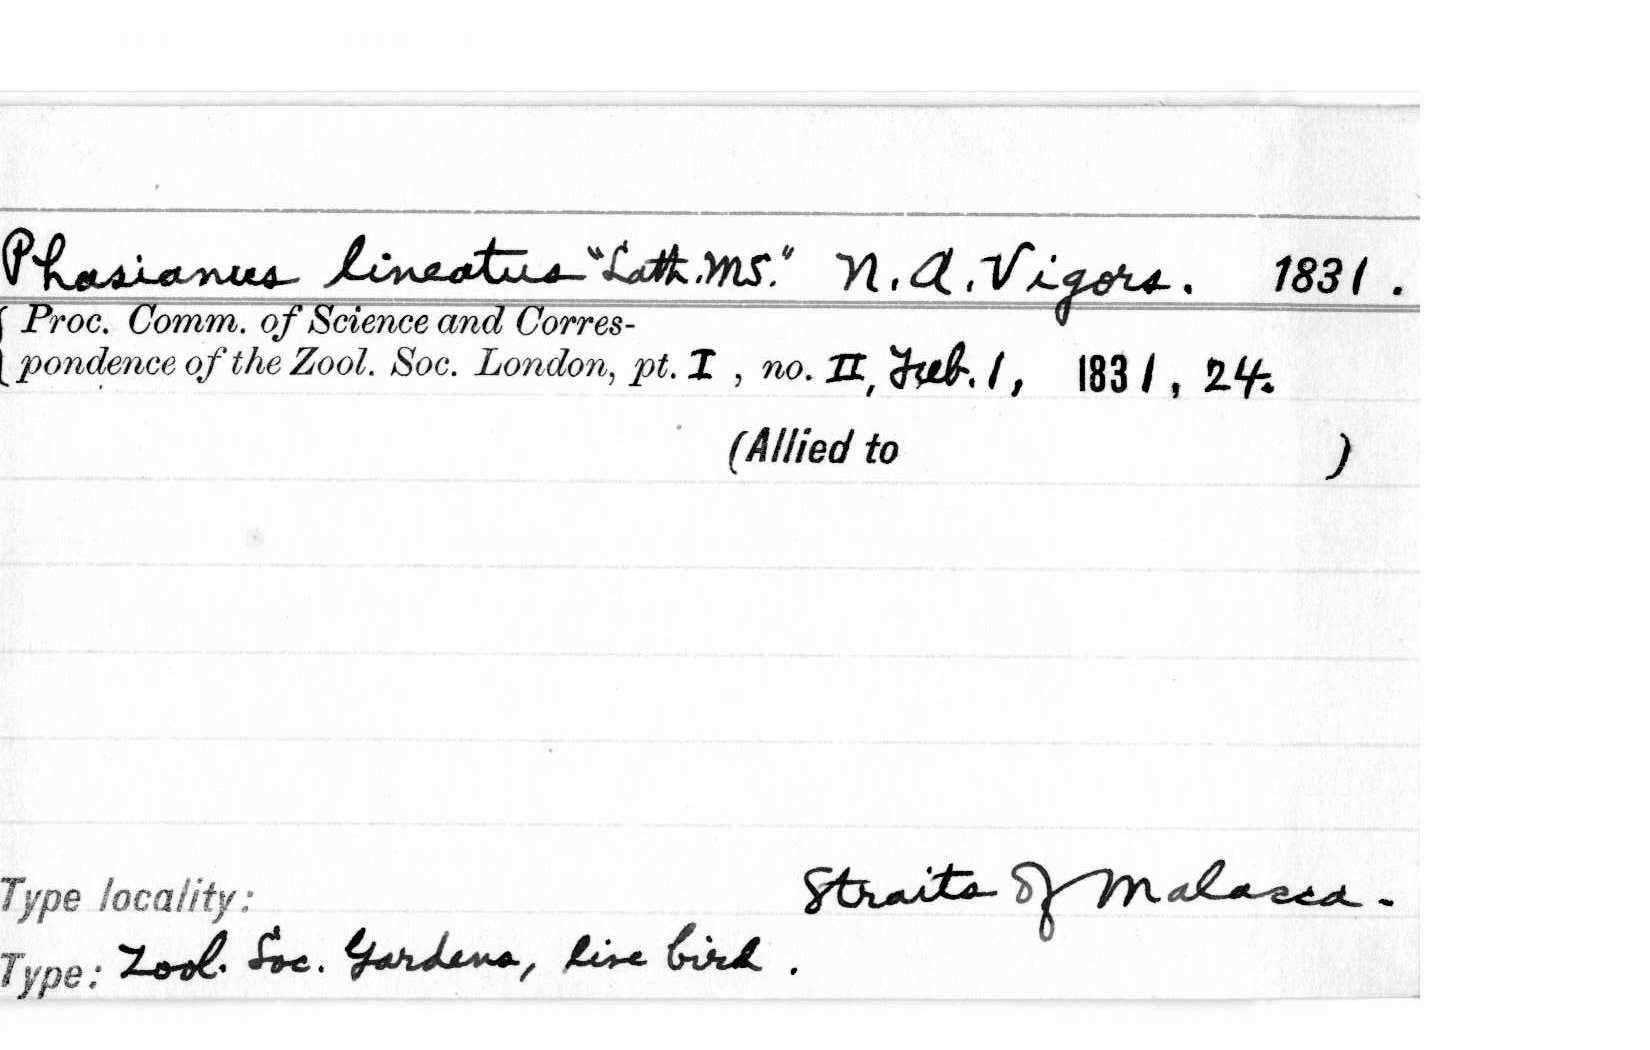 Phasianus lineatus "Lath. MS." N. A. Vigors. 1831.
Proc. Comm. of Science and Corres-
pondence of the Zool. Soc. London, pt. I, no. II, Feb. 1, 1831, 24.
(Allied to )
Type locality: Straits of Malacca.
Type: Zool. Soc. Gardens, live bird.